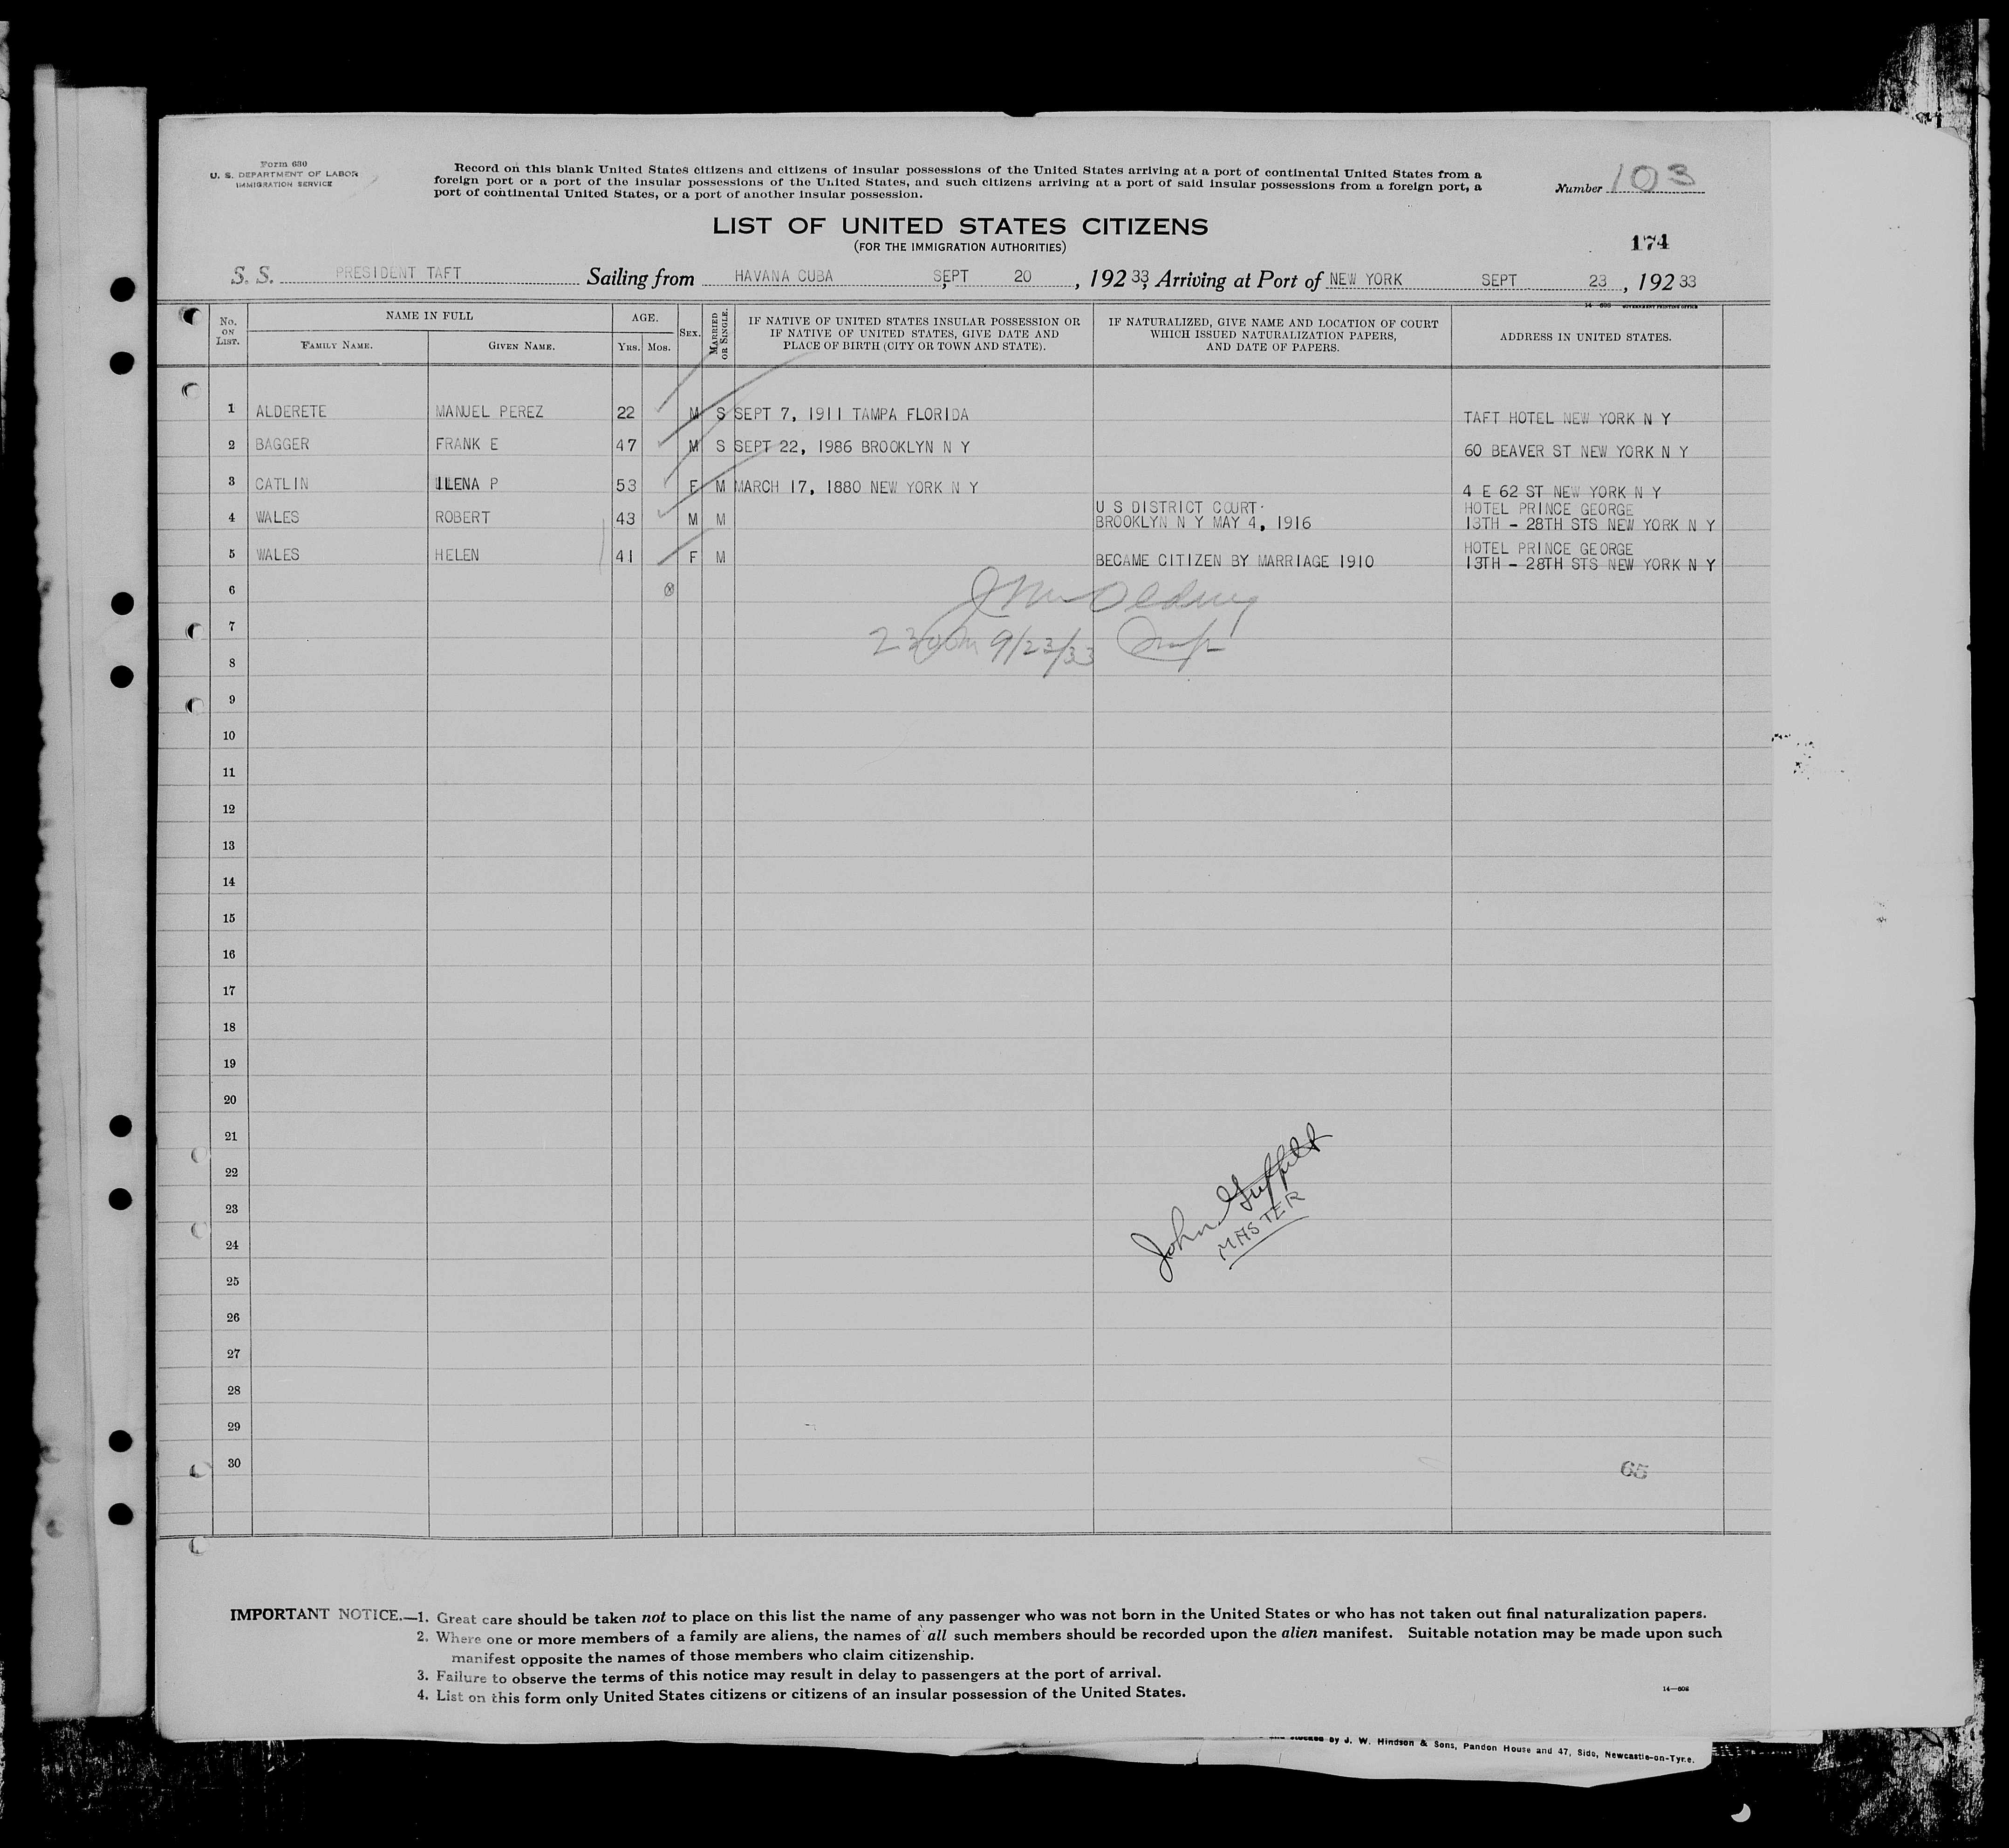 Form 630
U. S. DEPARTMENT OF LABOR
IMMIGRATION SERVICE
Record on this blank United States citizens and citizens of insular possessions of the United States arriving at a port of continental United States from a
foreign port or a port of the insular possessions of the United States, and such citizens arriving at a port of said insular possessions from a foreign port, a
port of continental United States, or a port of another insular possession.
Number 103
LIST OF UNITED STATES CITIZENS
(FOR THE IMMIGRATION AUTHORITIES)
174
S. S. PRESIDENT TAFT Sailing from HAVANA CUBA SEPT 20, 192 33, Arriving at Port of NEW YORK SEPT 23, 192 33
14—608 GOVERNMENT PRINTING OFFICE
No. ON LIST. NAME IN FULL FAMILY NAME. GIVEN NAME. AGE. YRS. MOS. SEX. MARRIED OR SINGLE. IF NATIVE OF UNITED STATES INSULAR POSSESSION OR IF NATIVE OF UNITED STATES, GIVE DATE AND PLACE OF BIRTH (CITY OR TOWN AND STATE). IF NATURALIZED, GIVE NAME AND LOCATION OF COURT WHICH ISSUED NATURALIZATION PAPERS, AND DATE OF PAPERS. ADDRESS IN UNITED STATES.
1 ALDERETE MANUEL PEREZ 22 M S SEPT 7, 1911 TAMPA FLORIDA TAFT HOTEL NEW YORK N Y
2 BAGGER FRANK E 47 M S SEPT 22, 1986 BROOKLYN N Y 60 BEAVER ST NEW YORK N Y
3 CATLIN ILENA P 53 F M MARCH 17, 1880 NEW YORK N Y 4 E 62 ST NEW YORK N Y
4 WALES ROBERT 43 M M U S DISTRICT COURT BROOKLYN N Y MAY 4, 1916 HOTEL PRINCE GEORGE 13TH - 28TH STS NEW YORK N Y
5 WALES HELEN 41 F M BECAME CITIZEN BY MARRIAGE 1910 HOTEL PRINCE GEORGE 13TH - 28TH STS NEW YORK N Y
6
7
9/23/33
8
9
10
11
12
13
14
15
16
17
18
19
20
21
22
23
John
MASTER
24
25
26
27
28
29
30
65
IMPORTANT NOTICE.—1. Great care should be taken not to place on this list the name of any passenger who was not born in the United States or who has not taken out final naturalization papers.
2. Where one or more members of a family are aliens, the names of all such members should be recorded upon the alien manifest. Suitable notation may be made upon such
manifest opposite the names of those members who claim citizenship.
3. Failure to observe the terms of this notice may result in delay to passengers at the port of arrival.
4. List on this form only United States citizens or citizens of an insular possession of the United States.
14—608
by J. W. Hindson & Sons, Pandon House and 47, Side, Newcastle-on-Tyne.